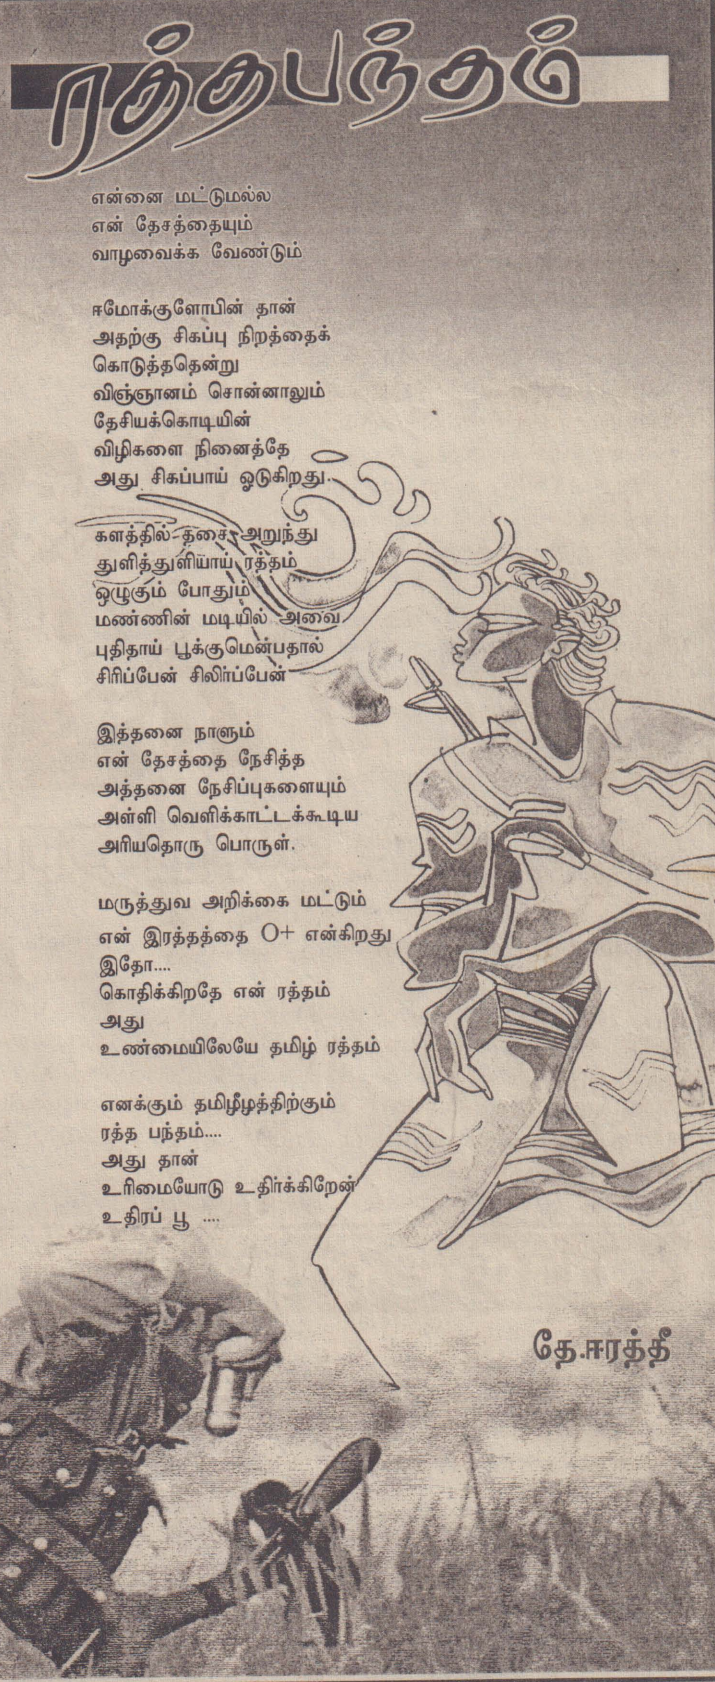 ரத்தபந்தம்
என்னை மட்டுமல்ல
என் தேசத்தையும்
வாழவைக்க வேண்டும்
ஈமோக்குளோபின் தான்
அதற்கு சிகப்பு நிறத்தைக்
கொடுத்ததென்று
விஞ்ஞானம் சொன்னாலும்
தேசியக்கொடியின்
விழிகளை நினைத்தே
அது சிகப்பாய் ஓடுகிறது.
களத்தில் தசை அறுந்து
துளித்துளியாய் ரத்தம்
ஒழுகும் போதும்
மண்ணின் மடியில் அவை
புதிதாய் பூக்குமென்பதால்
சிரிப்பேன் சிலிர்ப்பேன்
இத்தனை நாளும்
என் தேசத்தை நேசித்த
அத்தனை நேசிப்புகளையும்
அள்ளி வெளிக்காட்டக்கூடிய
அரியதொரு பொருள்.
மருத்துவ அறிக்கை மட்டும்
என் இரத்தத்தை O+ என்கிறது
இதோ....
கொதிக்கிறதே என் ரத்தம்
அது
உண்மையிலேயே தமிழ் ரத்தம்
எனக்கும் தமிழீழத்திற்கும்
ரத்த பந்தம்....
அது தான்
உரிமையோடு உதிர்க்கிறேன்
உதிரப் பூ ....
தே.ஈரத்தீ